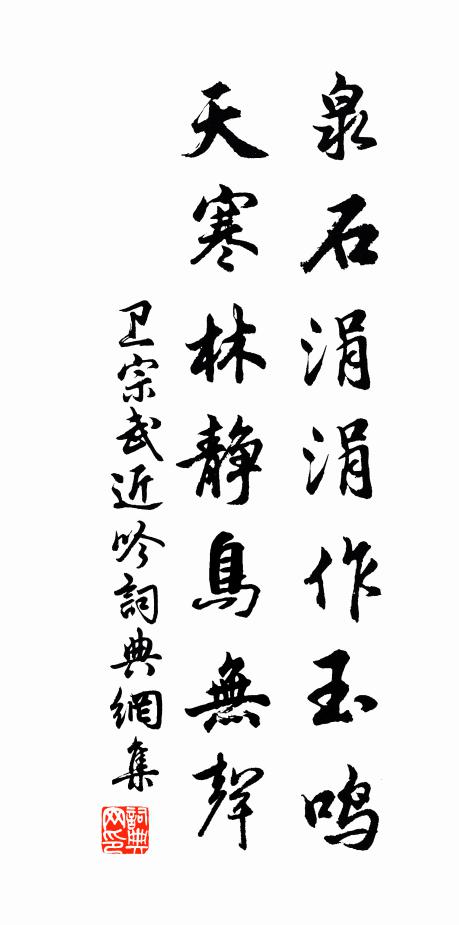 泉石涓涓作玉鸣
天寒林静鳥無聲
卫宗武近吟詞典網集
詞典
网印